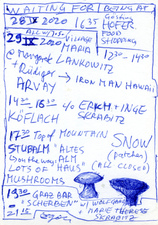 WAITING FOR / BEING AT
28 IX 2020 16 35 Gasthof HOFER
FOOD SHOPPING
29 IX 2020 Village
MARIA LANKOWITZ
12 30 - 14 30
@ Margaret
+ Rüdiger → IRON MAN HAWAII
ARVAY
14 30 - 16 30 c/o ERKH + INGE
KÖFLACH SKRABITZ
17 30 TOP OF MOUNTAIN
STUBALM "ALTES
ALM HAUS" (ALL CLOSED)
SNOW
(patches)
On the way:
LOTS OF
MUSHROOMS
19 30 GRAZ BAR
- "SCHERBEN"
21 15
W/ WOLFGANG
+ MARIE THERESE
SKRABITZ